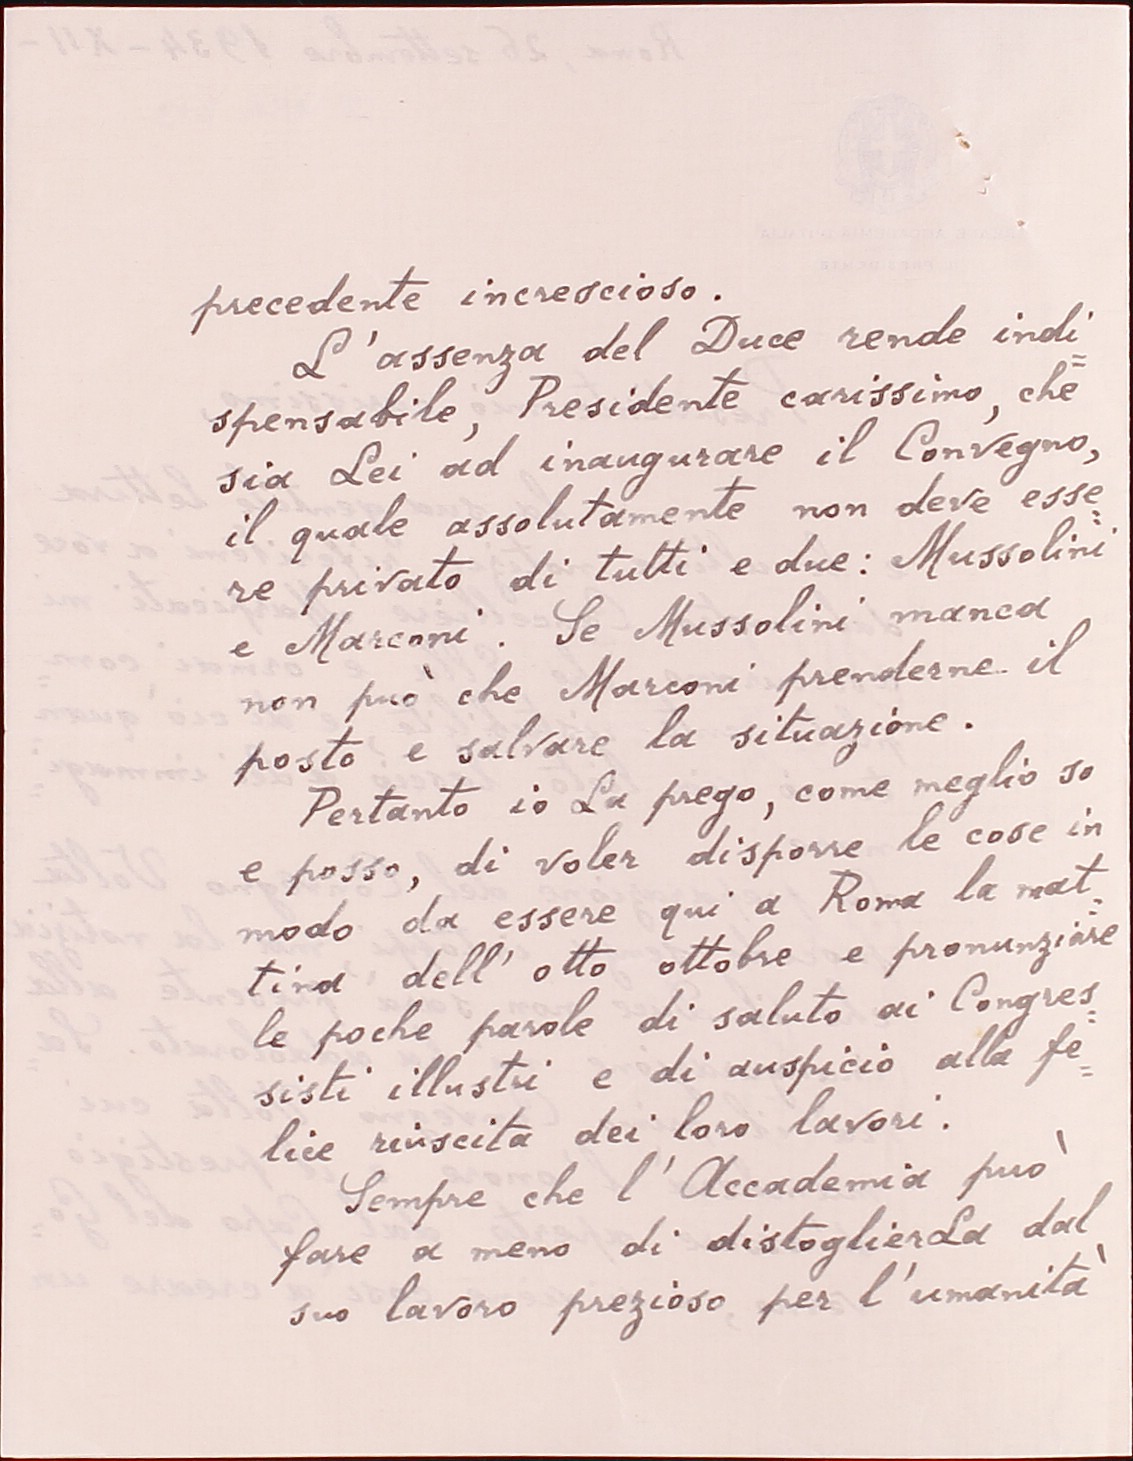 precedente increscioso.
L'assenza del Duce rende indi=
spensabile, Presidente carissimo, che
sia Lei ad inaugurare il Convegno,
il quale assolutamente non deve esse=
re privato di tutti e due: Mussolini
e Marconi. Se Mussolini manca
non può che Marconi prenderne il
posto e salvare la situazione.
Pertanto io La prego, come meglio so
e posso, di voler disporre le cose in
modo da essere qui a Roma la mat=
tina dell'otto ottobre e pronunziare
le poche parole di saluto ai Congres=
sisti illustri e di auspicio alla fe=
lice riuscita dei loro lavori.
Sempre che l'Accademia può
fare a meno di distoglierLa dal
suo lavoro prezioso, per l'umanità